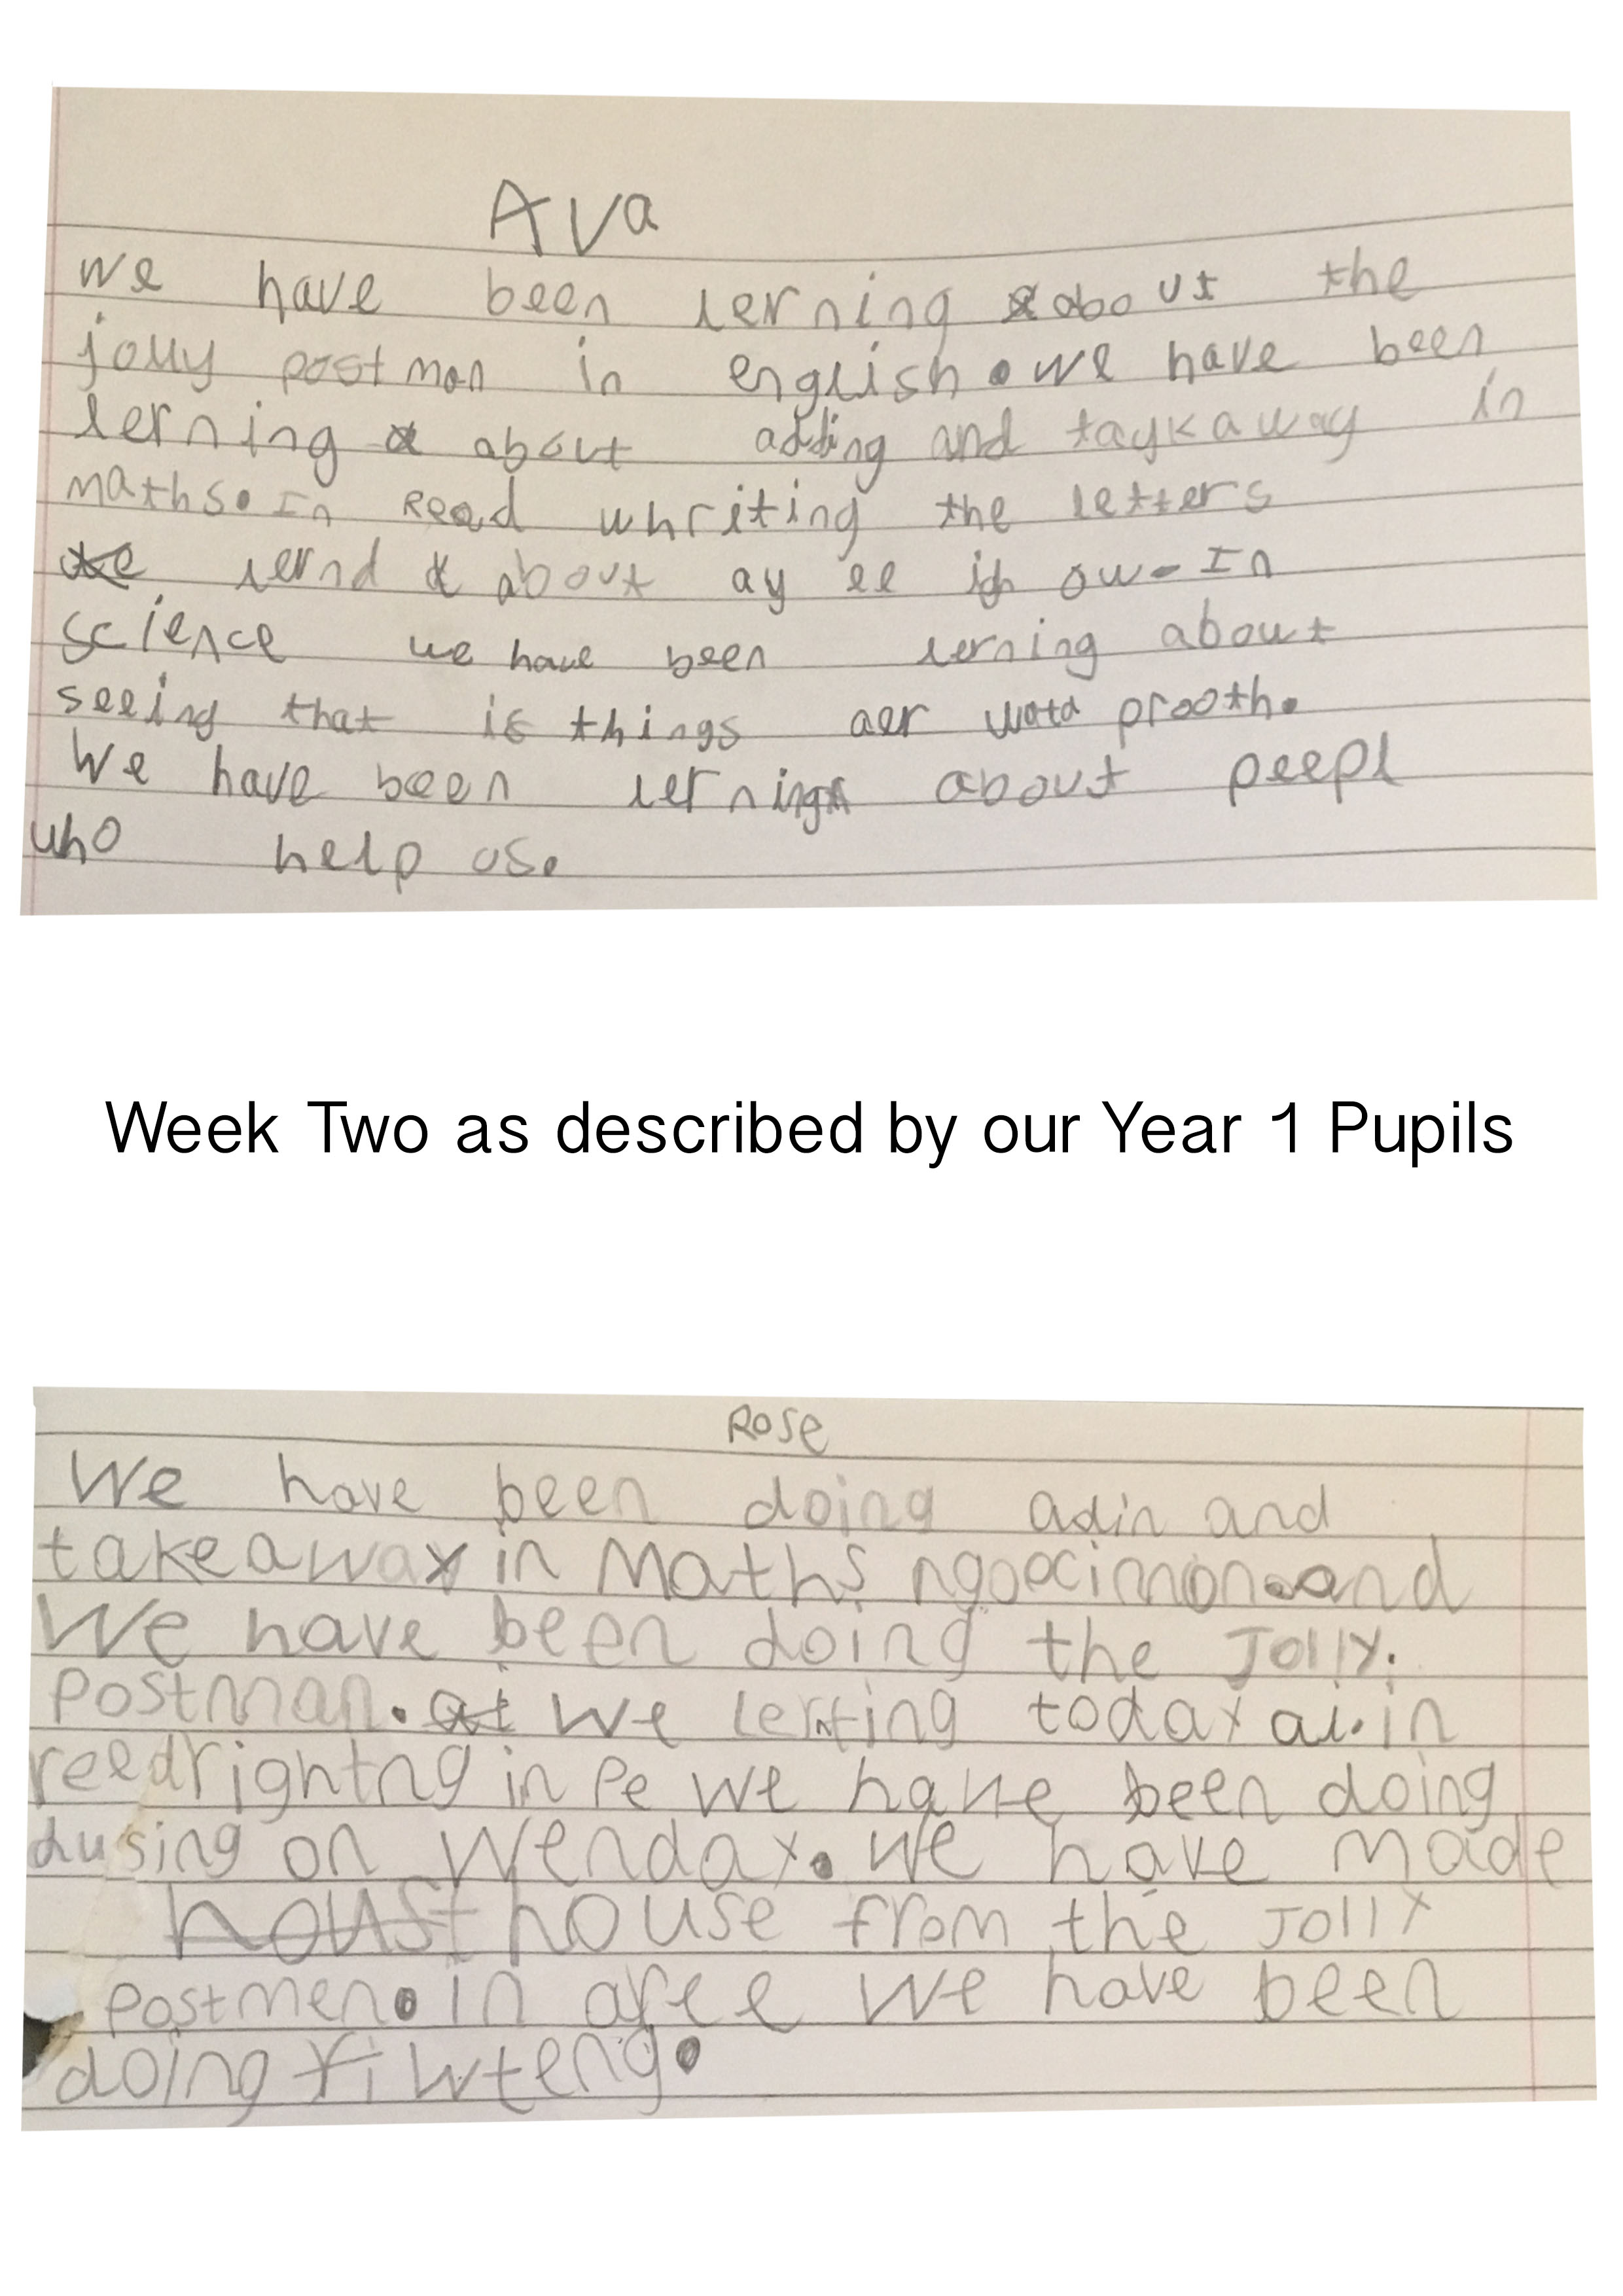 Ava
we have been lerning about the
jolly postman in english. we have been
lerning about adding and taykaway in
maths. In Read whriting the letters
lernd about ay ee igh ow. In
science we have been lerning about
seeing that is things aer wata prooth.
We have been lerning about peepl
who help us.
Week Two as described by our Year 1 Pupils
Rose
We have been doing adin and
takeaway in Maths and
We have been doing the Jolly.
Postman. We lerning today ai. in
reedrightng in Pe we have been doing
on Wenday. we have made
house from the Jolly
Postmen. in we have been
doing